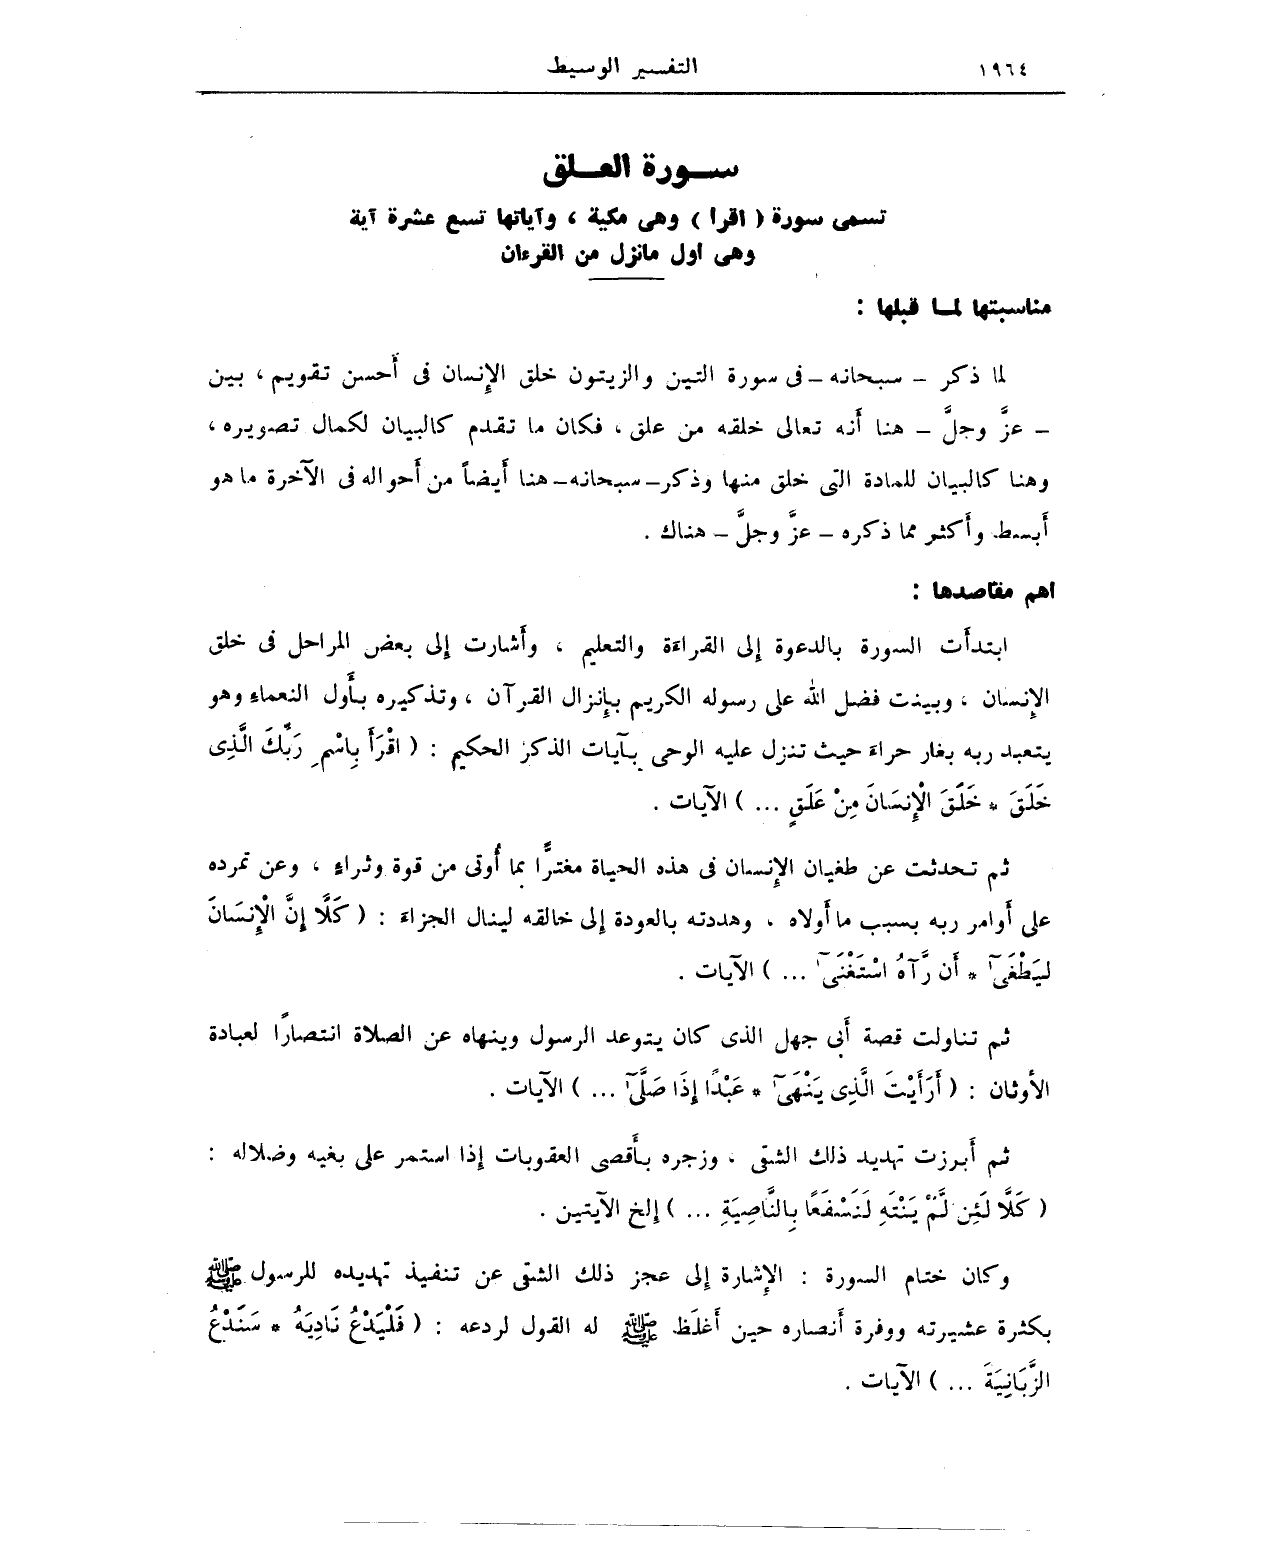 ١٩٦٤ التفسير الوسيط
سورة العلق
تسمى سورة ( اقرا ) وهى مكية ، وآياتها تسع عشرة آية
وهى اول مانزل من القرءان
مناسبتها لما قبلها :
لما ذكر – سبحانه – فى سورة التين والزيتون خلق الإنسان فى أحسن تقويم ، بين
– عزَّ وجلَّ – هنا أنه تعالى خلقه من علق ، فكان ما تقدم كالبيان لكمال تصويره ،
وهنا كالبيان للمادة التى خلق منها وذكر – سبحانه – هنا أيضاً من أحواله فى الآخرة ما هو
أبسط وأكثر مما ذكره – عزَّ وجلَّ – هناك .
اهم مقاصدها :
ابتدأت السورة بالدعوة إلى القراءة والتعليم ، وأشارت إلى بعض المراحل فى خلق
الإنسان ، وبينت فضل الله على رسوله الكريم بإنزال القرآن ، وتذكيره بأول النعماء وهو
يتعبد ربه بغار حراء حيث تنزل عليه الوحى بآيات الذكر الحكيم : ( اقْرَأْ بِاسْمِ رَبِّكَ الَّذِى
خَلَقَ * خَلَقَ الْإِنسَانَ مِنْ عَلَقٍ ... ) الآيات .
ثم تحدثت عن طغيان الإنسان فى هذه الحياة مغترًّا بما أُوتى من قوة وثراء ، وعن تمرده
على أوامر ربه بسبب ما أولاه ، وهددته بالعودة إلى خالقه لينال الجزاء : ( كَلَّا إِنَّ الْإِنسَانَ
لَيَطْغَىٰٓ * أَن رَّآهُ اسْتَغْنَىٰٓ ... ) الآيات .
ثم تناولت قصة أبى جهل الذى كان يتوعد الرسول وينهاه عن الصلاة انتصارًا لعبادة
الأوثان : ( أَرَأَيْتَ الَّذِى يَنْهَىٰٓ * عَبْدًا إِذَا صَلَّىٰٓ ... ) الآيات .
ثم أبرزت تهديد ذلك الشقى ، وزجره بأقصى العقوبات إذا استمر على بغيه وضلاله :
( كَلَّا لَئِن لَّمْ يَنْتَهِ لَنَسْفَعًا بِالنَّاصِيَةِ ... ) إلخ الآيتين .
وكان ختام السورة : الإشارة إلى عجز ذلك الشقى عن تنفيذ تهديده للرسول ﷺ
بكثرة عشيرته ووفرة أنصاره حين أغلَظ ﷺ له القول لردعه : ( فَلْيَدْعُ نَادِيَهُ * سَنَدْعُ
الزَّبَانِيَةَ ... ) الآيات .